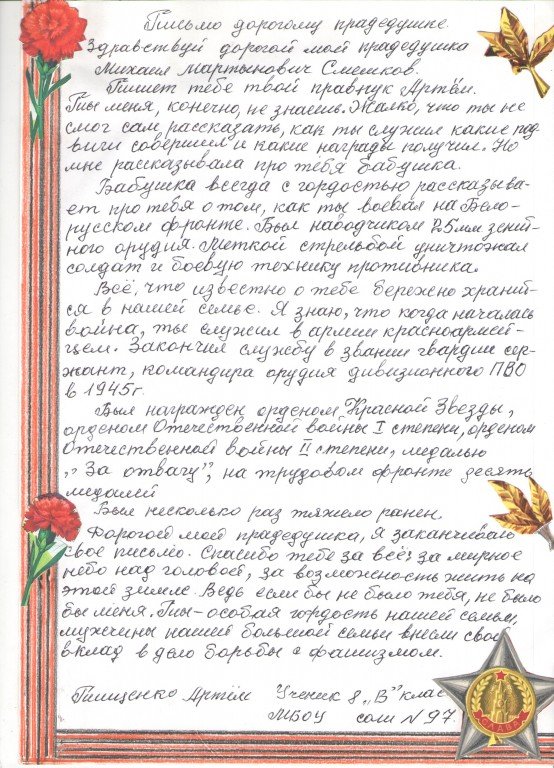 Письмо дорогому прадедушке.
Здравствуй дорогой мой прадедушка
Михаил Мартынович Смешков.
Пишет тебе твой правнук Артём.
Ты меня, конечно, не знаешь. Жалко, что ты не
смог сам, рассказать, как ты служил какие под
виги совершил и какие награды получил. Но
мне рассказывала про тебя бабушка.
Бабушка всегда с гордостью рассказыва-
ет про тебя о том, как ты воевал на Бело-
русском фронте. Был наводчиком 25мм зенит-
ного орудия. Меткой стрельбой уничтожал
солдат и боевую технику противника.
Всё, что известно о тебе бережно хранит-
ся в нашей семье. Я знаю, что когда началась
война, ты служил в армии красноармей-
цем. Закончил службу в звании гвардии сер-
жант, командира орудия дивизионного ПВО
в 1945г.
Был награжден орденом Красной Звезды,
орденом Отечественной войны I степени, орденом
Отечественной войны II степени, медалью
„За отвагу", на трудовом фронте десять
медалей
Был несколько раз тяжело ранен.
Дорогой мой прадедушка, я заканчиваю
свое письмо. Спасибо тебе за всё: за мирное
небо над головой, за возможность жить на
этой земле. Ведь если бы не было тебя, не было
бы меня. Ты-особая гордость нашей семьи,
мужчины нашей большой семьи внесли свой
вклад в дело борьбы с фашизмом.
Тищенко Артём Ученик 8 „В" клас
МБОУ сош N 97.
СЛАВА